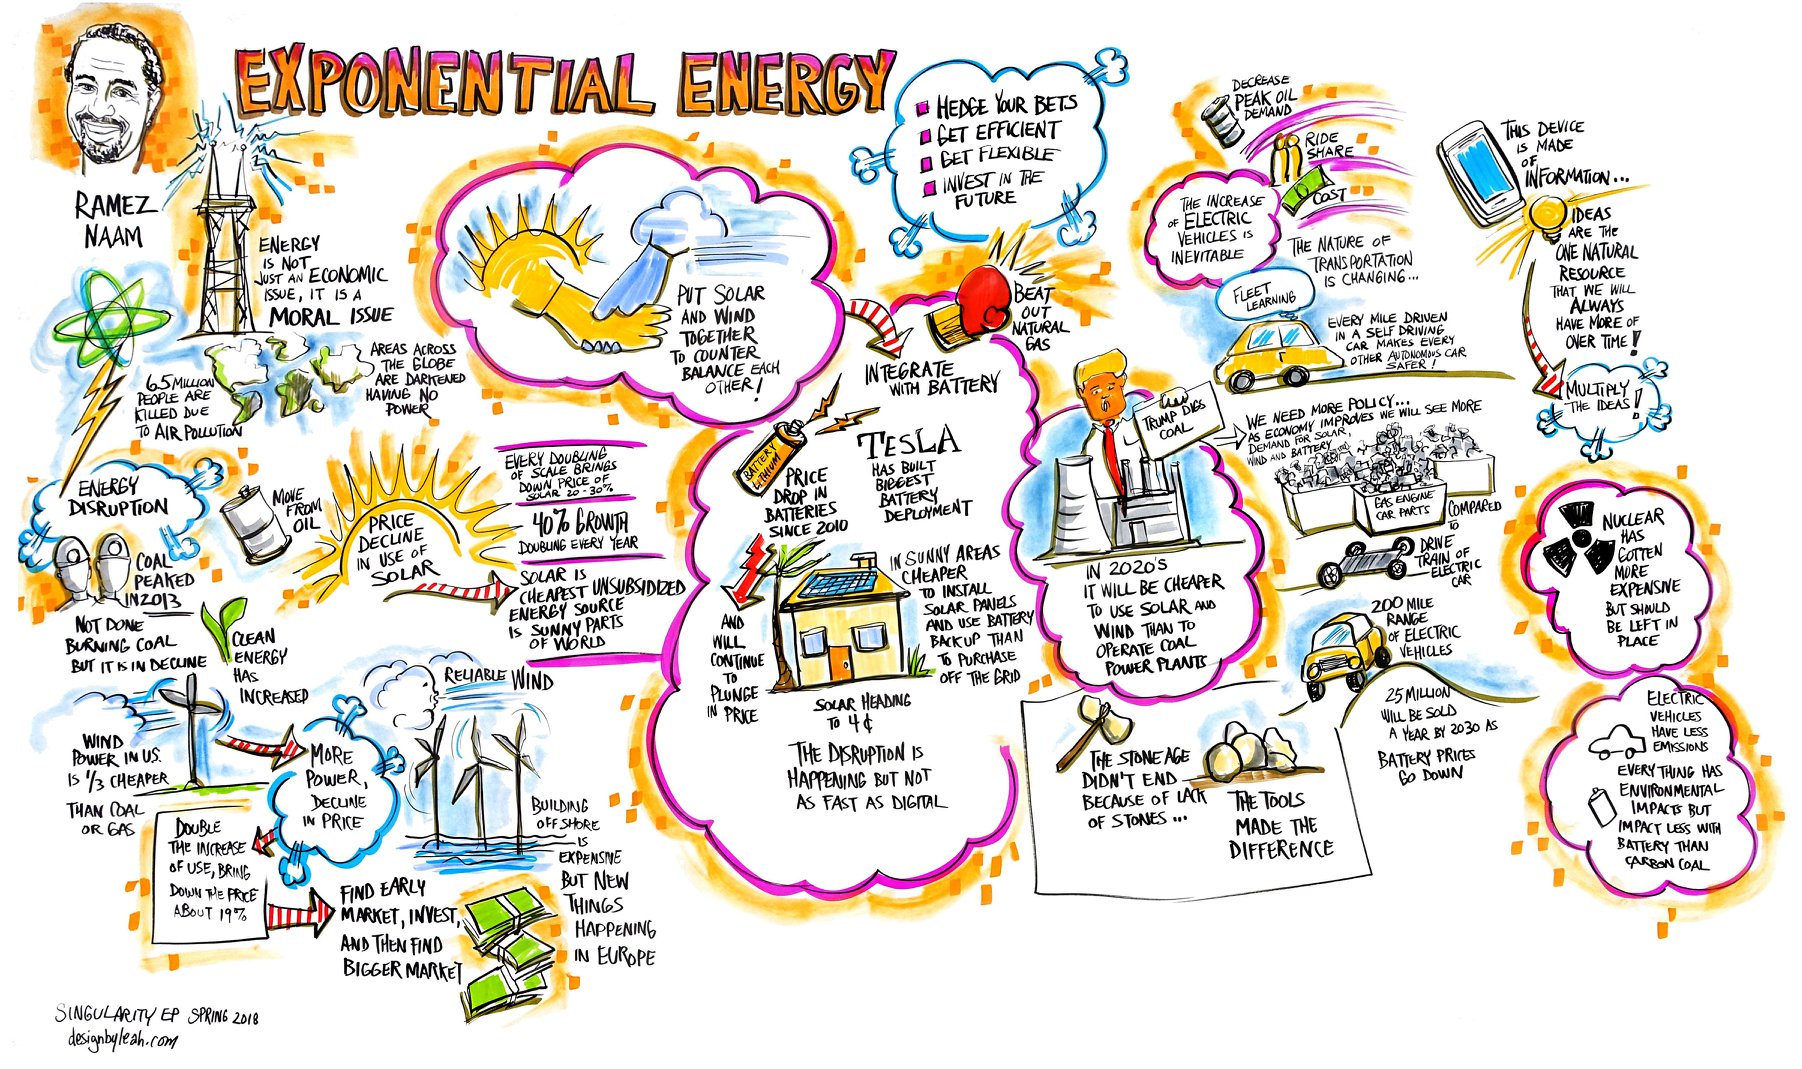 EXPONENTIAL ENERGY
RAMEZ
NAAM
ENERGY
IS NOT
JUST AN ECONOMIC
ISSUE, IT IS A
MORAL ISSUE
6.5 MILLION
PEOPLE ARE
KILLED DUE
TO AIR POLLUTION
AREAS ACROSS
THE GLOBE
ARE DARKENED
HAVING NO
POWER
ENERGY
DISRUPTION
COAL
PEAKED
IN 2013
NOT DONE
BURNING COAL
BUT IT IS IN DECLINE
CLEAN
ENERGY
HAS
INCREASED
MOVE
FROM
OIL
PRICE
DECLINE
IN USE OF
SOLAR
EVERY DOUBLING
OF SCALE BRINGS
DOWN PRICE OF
SOLAR 20-30%
40% GROWTH
DOUBLING EVERY YEAR
SOLAR IS
CHEAPEST UNSUBSIDIZED
ENERGY SOURCE
IS SUNNY PARTS
OF WORLD
WIND
POWER IN U.S.
IS 1/3 CHEAPER
THAN COAL
OR GAS
MORE
POWER,
DECLINE
IN PRICE
DOUBLE
THE INCREASE
OF USE, BRING
DOWN THE PRICE
ABOUT 19%
FIND EARLY
MARKET, INVEST,
AND THEN FIND
BIGGER MARKET
RELIABLE WIND
BUILDING
OFF SHORE
IS
EXPENSIVE
BUT NEW
THINGS
HAPPENING
IN EUROPE
PUT SOLAR
AND WIND
TOGETHER
TO COUNTER
BALANCE EACH
OTHER!
INTEGRATE
WITH BATTERY
BEAT
OUT
NATURAL
GAS
HEDGE YOUR BETS
GET EFFICIENT
GET FLEXIBLE
INVEST IN THE
FUTURE
BATTERY
LITHIUM
PRICE
DROP IN
BATTERIES
SINCE 2010
AND
WILL
CONTINUE
TO
PLUNGE
IN PRICE
TESLA
HAS BUILT
BIGGEST
BATTERY
DEPLOYMENT
IN SUNNY AREAS
CHEAPER
TO INSTALL
SOLAR PANELS
AND USE BATTERY
BACK UP THAN
TO PURCHASE
OFF THE GRID
SOLAR HEADING
TO 4¢
THE DISRUPTION IS
HAPPENING BUT NOT
AS FAST AS DIGITAL
TRUMP DIGS
COAL
IN 2020'S
IT WILL BE CHEAPER
TO USE SOLAR AND
WIND THAN TO
OPERATE COAL
POWER PLANTS
THE STONE AGE
DIDN'T END
BECAUSE OF LACK
OF STONES...
THE TOOLS
MADE THE
DIFFERENCE
DECREASE
PEAK OIL
DEMAND
RIDE
SHARE
COST
THE INCREASE
OF ELECTRIC
VEHICLES IS
INEVITABLE
THE NATURE OF
TRANSPORTATION
IS CHANGING...
FLEET
LEARNING
EVERY MILE DRIVEN
IN A SELF DRIVING
CAR MAKES EVERY
OTHER AUTONOMOUS CAR
SAFER!
WE NEED MORE POLICY...
AS ECONOMY IMPROVES WE WILL SEE MORE
DEMAND FOR SOLAR,
WIND AND BATTERY
GAS ENGINE
CAR PARTS
COMPARED
TO
DRIVE
TRAIN OF
ELECTRIC
CAR
200 MILE
RANGE
OF ELECTRIC
VEHICLES
25 MILLION
WILL BE SOLD
A YEAR BY 2030 AS
BATTERY PRICES
GO DOWN
THIS DEVICE
IS MADE
OF
INFORMATION...
IDEAS
ARE THE
ONE NATURAL
RESOURCE
THAT WE WILL
ALWAYS
HAVE MORE OF
OVER TIME!
MULTIPLY
THE IDEAS!
NUCLEAR
HAS
GOTTEN
MORE
EXPENSIVE
BUT SHOULD
BE LEFT IN
PLACE
ELECTRIC
VEHICLES
HAVE LESS
EMISSIONS
EVERYTHING HAS
ENVIRONMENTAL
IMPACTS BUT
IMPACT LESS WITH
BATTERY THAN
CARBON COAL
SINGULARITY EP SPRING 2018
designbyleah.com